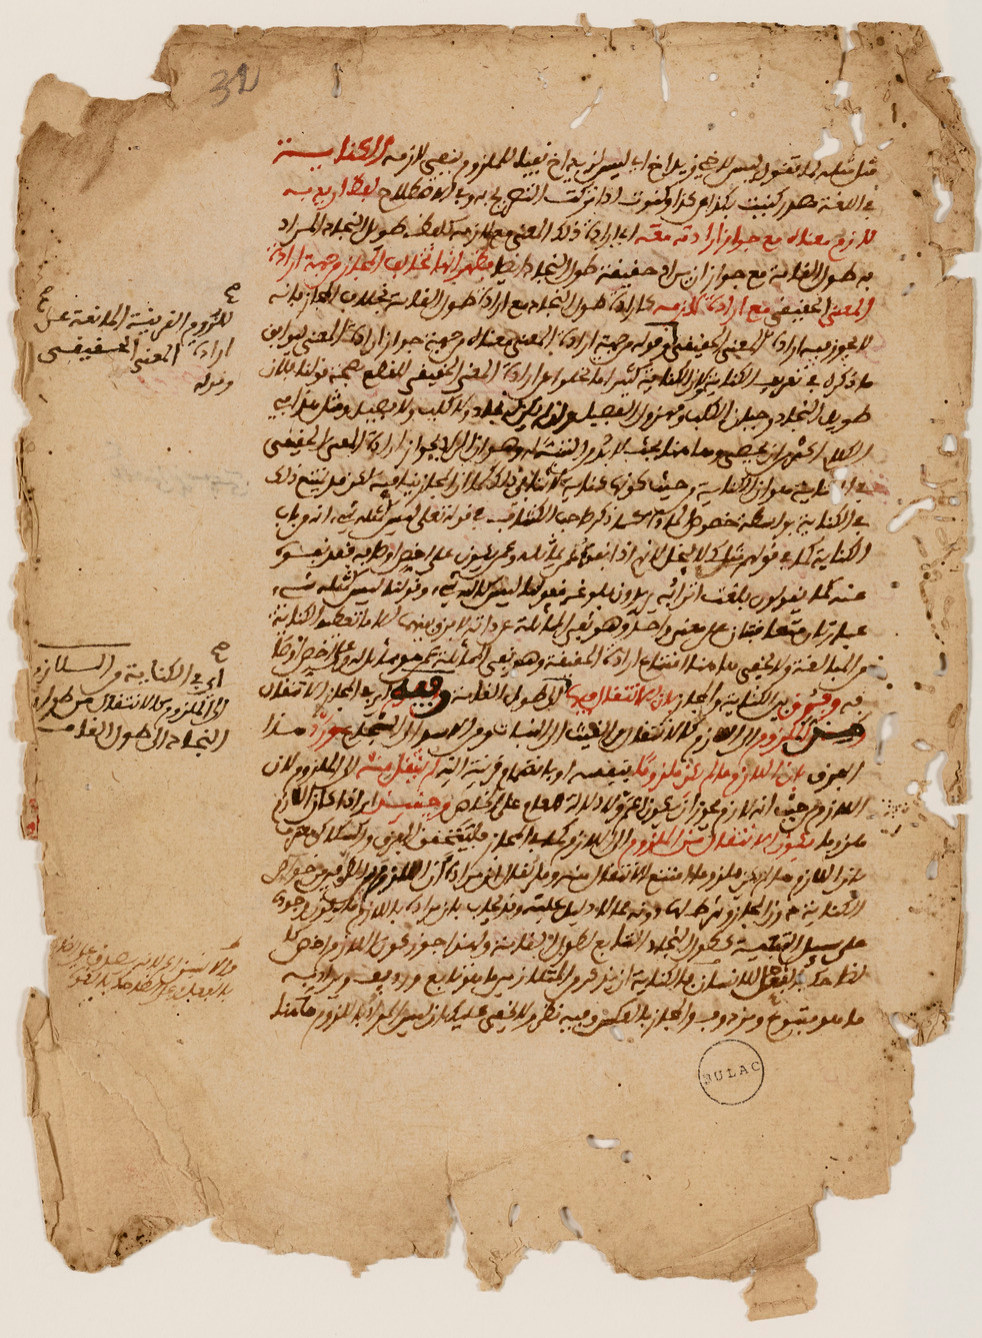 32
مثل مثله كما تقول ليس لاخي زيد اخ اي ليس لزيد اخ نفيا للملزوم بنفي لازمه الكناية
في اللغة مصدر كنيت بكذا عن كذا وكنوت اذا تركت التصريح به وفي الاصطلاح لفظ اريد به
لازم معناه مع جواز ارادته معه اي ارادة ذلك المعنى مع لازمه كلفظ طويل النجاد المراد
به طول القامة مع جواز ان يراد حقيقة طول النجاد ايضا فظهر انها تخالف المجاز من جهة ارادة
المعنى الحقيقي مع ارادة لازمه كارادة طول النجاد مع ارادة طول القامة بخلاف المجاز فانه
لا يجوز فيه ارادة المعنى الحقيقي وقوله من جهة ارادة المعنى معناه من جهة جواز ارادة المعنى ليوافق
ما ذكره في تعريف الكناية ولان الكناية كثيرا ما تخلو عن ارادة المعنى الحقيقي للقطع بصحة قولنا فلان
طويل النجاد وجبان الكلب ومهزول الفصيل وان لم يكن له نجاد ولا كلب ولا فصيل ومثل هذا في
الكلام اكثر من ان يحصى وها هنا بحث لا بد من التنبه له وهو ان المراد بجواز ارادة المعنى الحقيقي
في الكناية هو ان الكناية من حيث كونها كناية لا تنافي ذلك كما ان المجاز ينافيه لكن قد يمتنع ذلك
في الكناية بواسطة خصوص المادة كما ذكر صاحب الكشاف في قوله تعالى ليس كمثله شيء انه من باب
الكناية كما في قولهم مثلك لا يبخل لانهم اذا نفوه عمن يماثله وعمن يكون على اخص اوصافه فقد نفوه
عنه كما يقولون بلغت اترابه يريدون بلوغه فقولنا ليس كالله شيء وقولنا ليس كمثله شيء
عبارتان متعاقبتان على معنى واحد وهو نفي المماثلة عن ذاته لا فرق بينهما الا ما تعطيه الكناية
من المبالغة ولا يخفى ها هنا امتناع ارادة الحقيقة وهو نفي المماثلة عمن هو مماثل له وعلى اخص اوصافه
وفرق بين الكناية والمجاز بان الانتقال فيها
من الملزوم الى اللازم كالانتقال من الغيث الى النبات ومن الاسد الى الشجاع ورد هذا
الفرق بان اللازم ما لم يكن ملزوما بنفسه او بانضمام قرينة اليه لم ينتقل منه الى الملزوم لان
اللازم من حيث انه لازم يجوز ان يكون اعم ولا دلالة للعام على الخاص وحينئذ اي اذا كان اللازم
ملزوما يكون الانتقال من الملزوم الى اللازم كما في المجاز فلا يتحقق الفرق والسكاكي معترف
بان اللازم ما لم يكن ملزوما امتنع الانتقال منه وما يقال ان مراده ان اللزوم من الطرفين من خواص
الكناية دون المجاز او شرط لها دونه مما لا دليل عليه وقد يجاب بان مراده باللازم ما يكون وجوده
على سبيل التبعية كطول النجاد التابع لطول القامة ولهذا جوز كون اللازم اخص كا
لضاحك بالفعل للانسان فالكناية ان يذكر من المتلازمين ما هو تابع ورديف ويراد به
ما هو متبوع ومردوف والمجاز بالعكس وفيه نظر ولا يخفى عليك ان ليس المراد باللزوم ها هنا
للزوم القرينة المانعة عن
ارادة المعنى الحقيقي
وقوله
اي في الكناية من اللازم
الى الملزوم كالانتقال من طول
النجاد الى طول القامة
BULAC